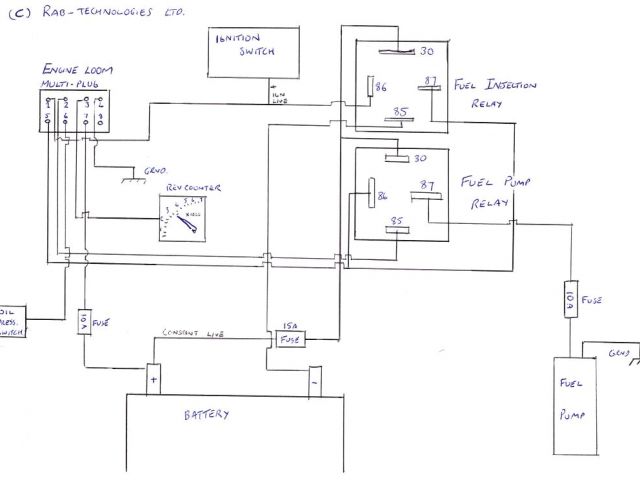 (C) RAB-TECHNOLOGIES LTD.
IGNITION
SWITCH
ENGINE LOOM
MULTI-PLUG
1 2 3 4
5 6 7 8
+
IGN
LIVE
30
86
87
85
FUEL INJECTION
RELAY
GRND.
REV COUNTER
X1000
30
86
87
85
FUEL PUMP
RELAY
OIL
PRESS.
SWITCH
10A
FUSE
CONSTANT LIVE
15A
FUSE
10A
FUSE
GRND.
+
-
BATTERY
FUEL
PUMP